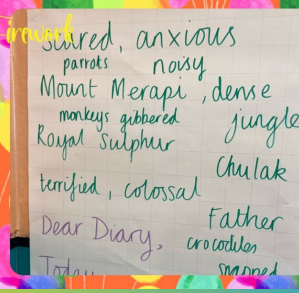 Firework
scared, anxious
parrots noisy
Mount Merapi, dense
monkeys gibbered jungle
Royal Sulphur
Chulak
terrified, colossal
Father
Dear Diary,
crocodiles
Today
snapped